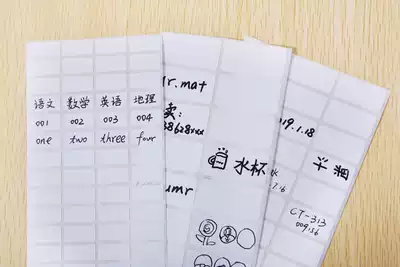 语文 数学 英语 地理
001 002 003 004
one two three four
mr.mat
卖:
38628xxx
umr
水杯
2019.1.18
半湘
水
7.6
CT-313
009:56